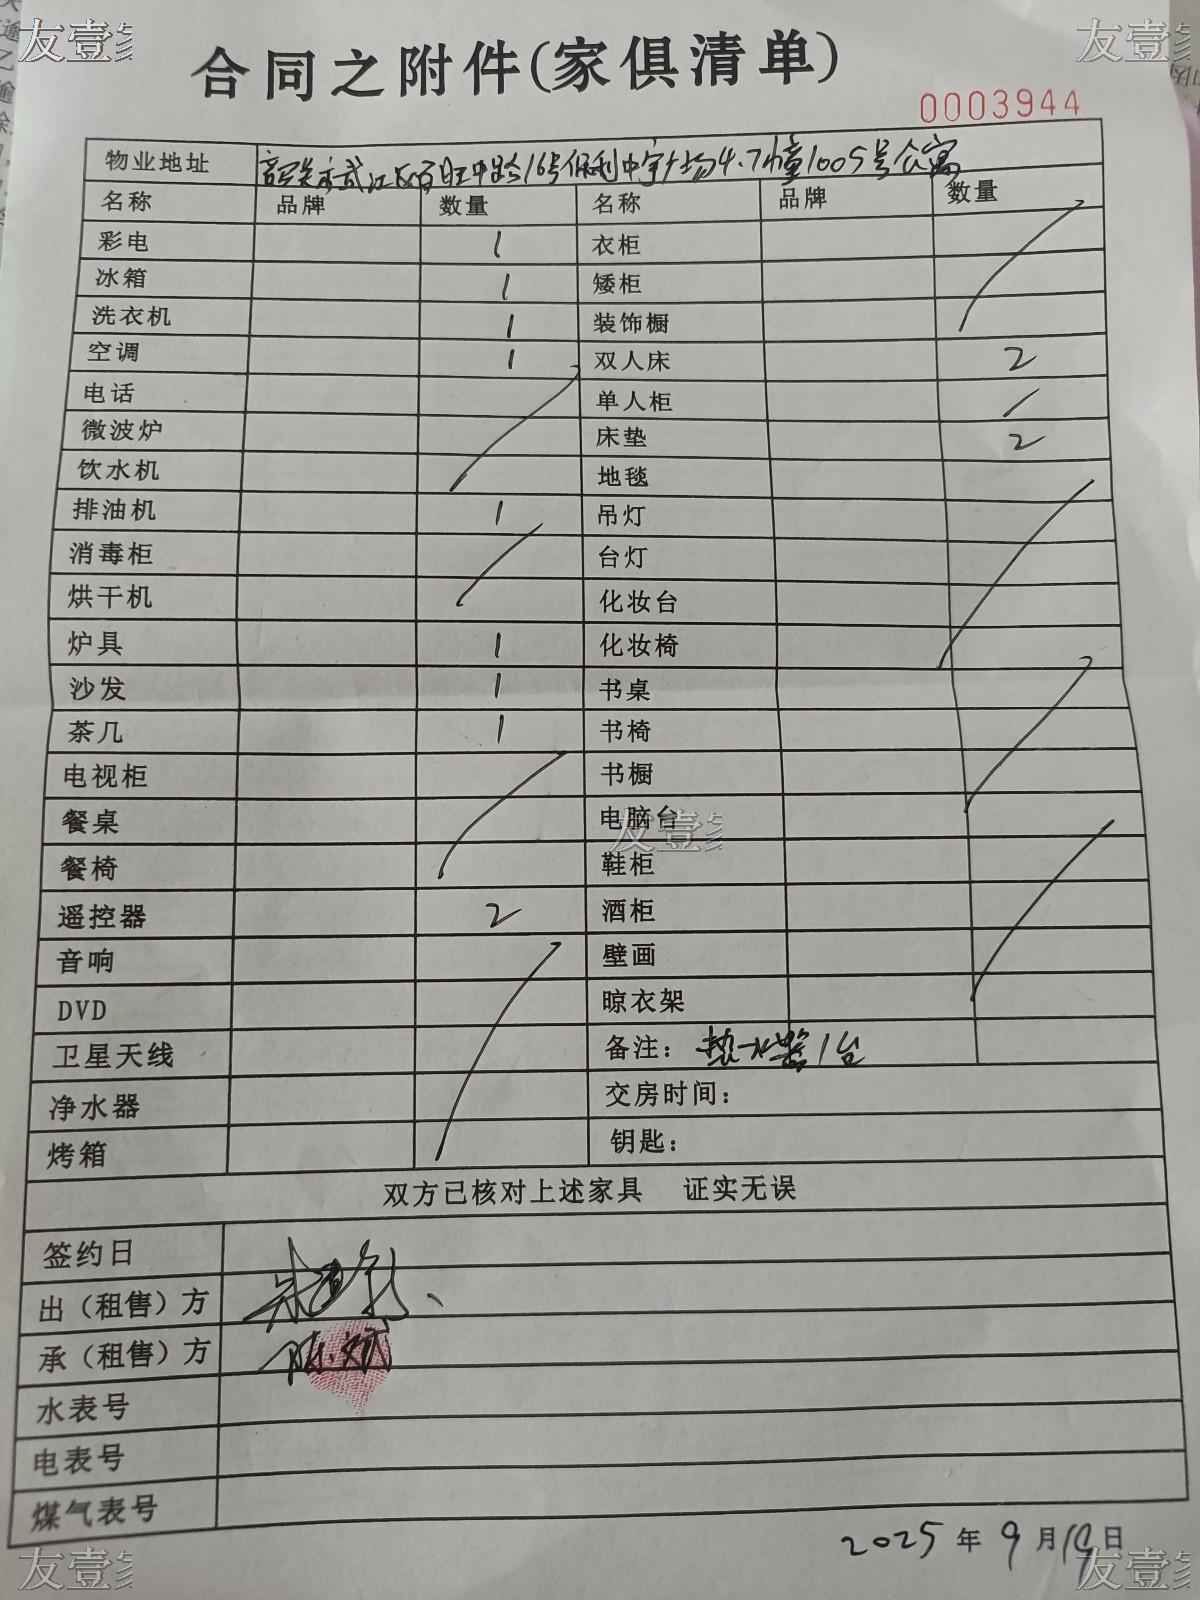 友壹家
友壹家
合同之附件(家俱清单)
0003944
物业地址 韶关市武江区百旺中路16号保利中宇广场4.7幢1005号公寓
名称 品牌 数量 名称 品牌 数量
彩电 1 衣柜
冰箱 1 矮柜
洗衣机 1 装饰橱
空调 1 双人床 2
电话 单人柜
微波炉 床垫 2
饮水机 地毯
排油机 1 吊灯
消毒柜 台灯
烘干机 化妆台
炉具 1 化妆椅
沙发 1 书桌
茶几 1 书椅
电视柜 书橱
餐桌 电脑台
友壹家
餐椅 鞋柜
遥控器 2 酒柜
音响 壁画
DVD 晾衣架
卫星天线 备注：热水器1台
净水器 交房时间：
烤箱 钥匙：
双方已核对上述家具 证实无误
签约日
出（租售）方
承（租售）方
水表号
电表号
煤气表号
2025年9月19日
友壹家
友壹家